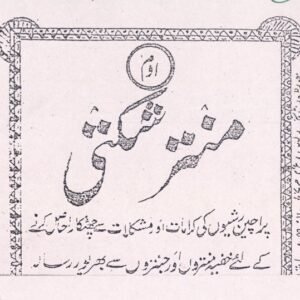 اوم
منتر شکتی
پراچین رشیوں کی کرامات اور مشکلات سے چھٹکارا حاصل کرنے
کے لئے خفیہ منتروں اور جنتروں سے بھرپور رسالہ